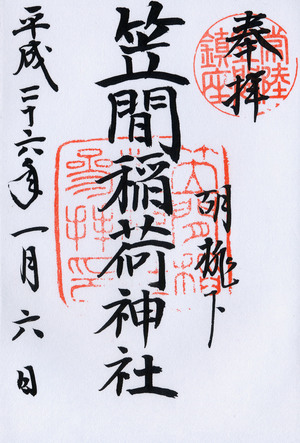 奉拝
常陸
鎮座
胡桃下
笠間稲荷神社
平成二十六年一月六日